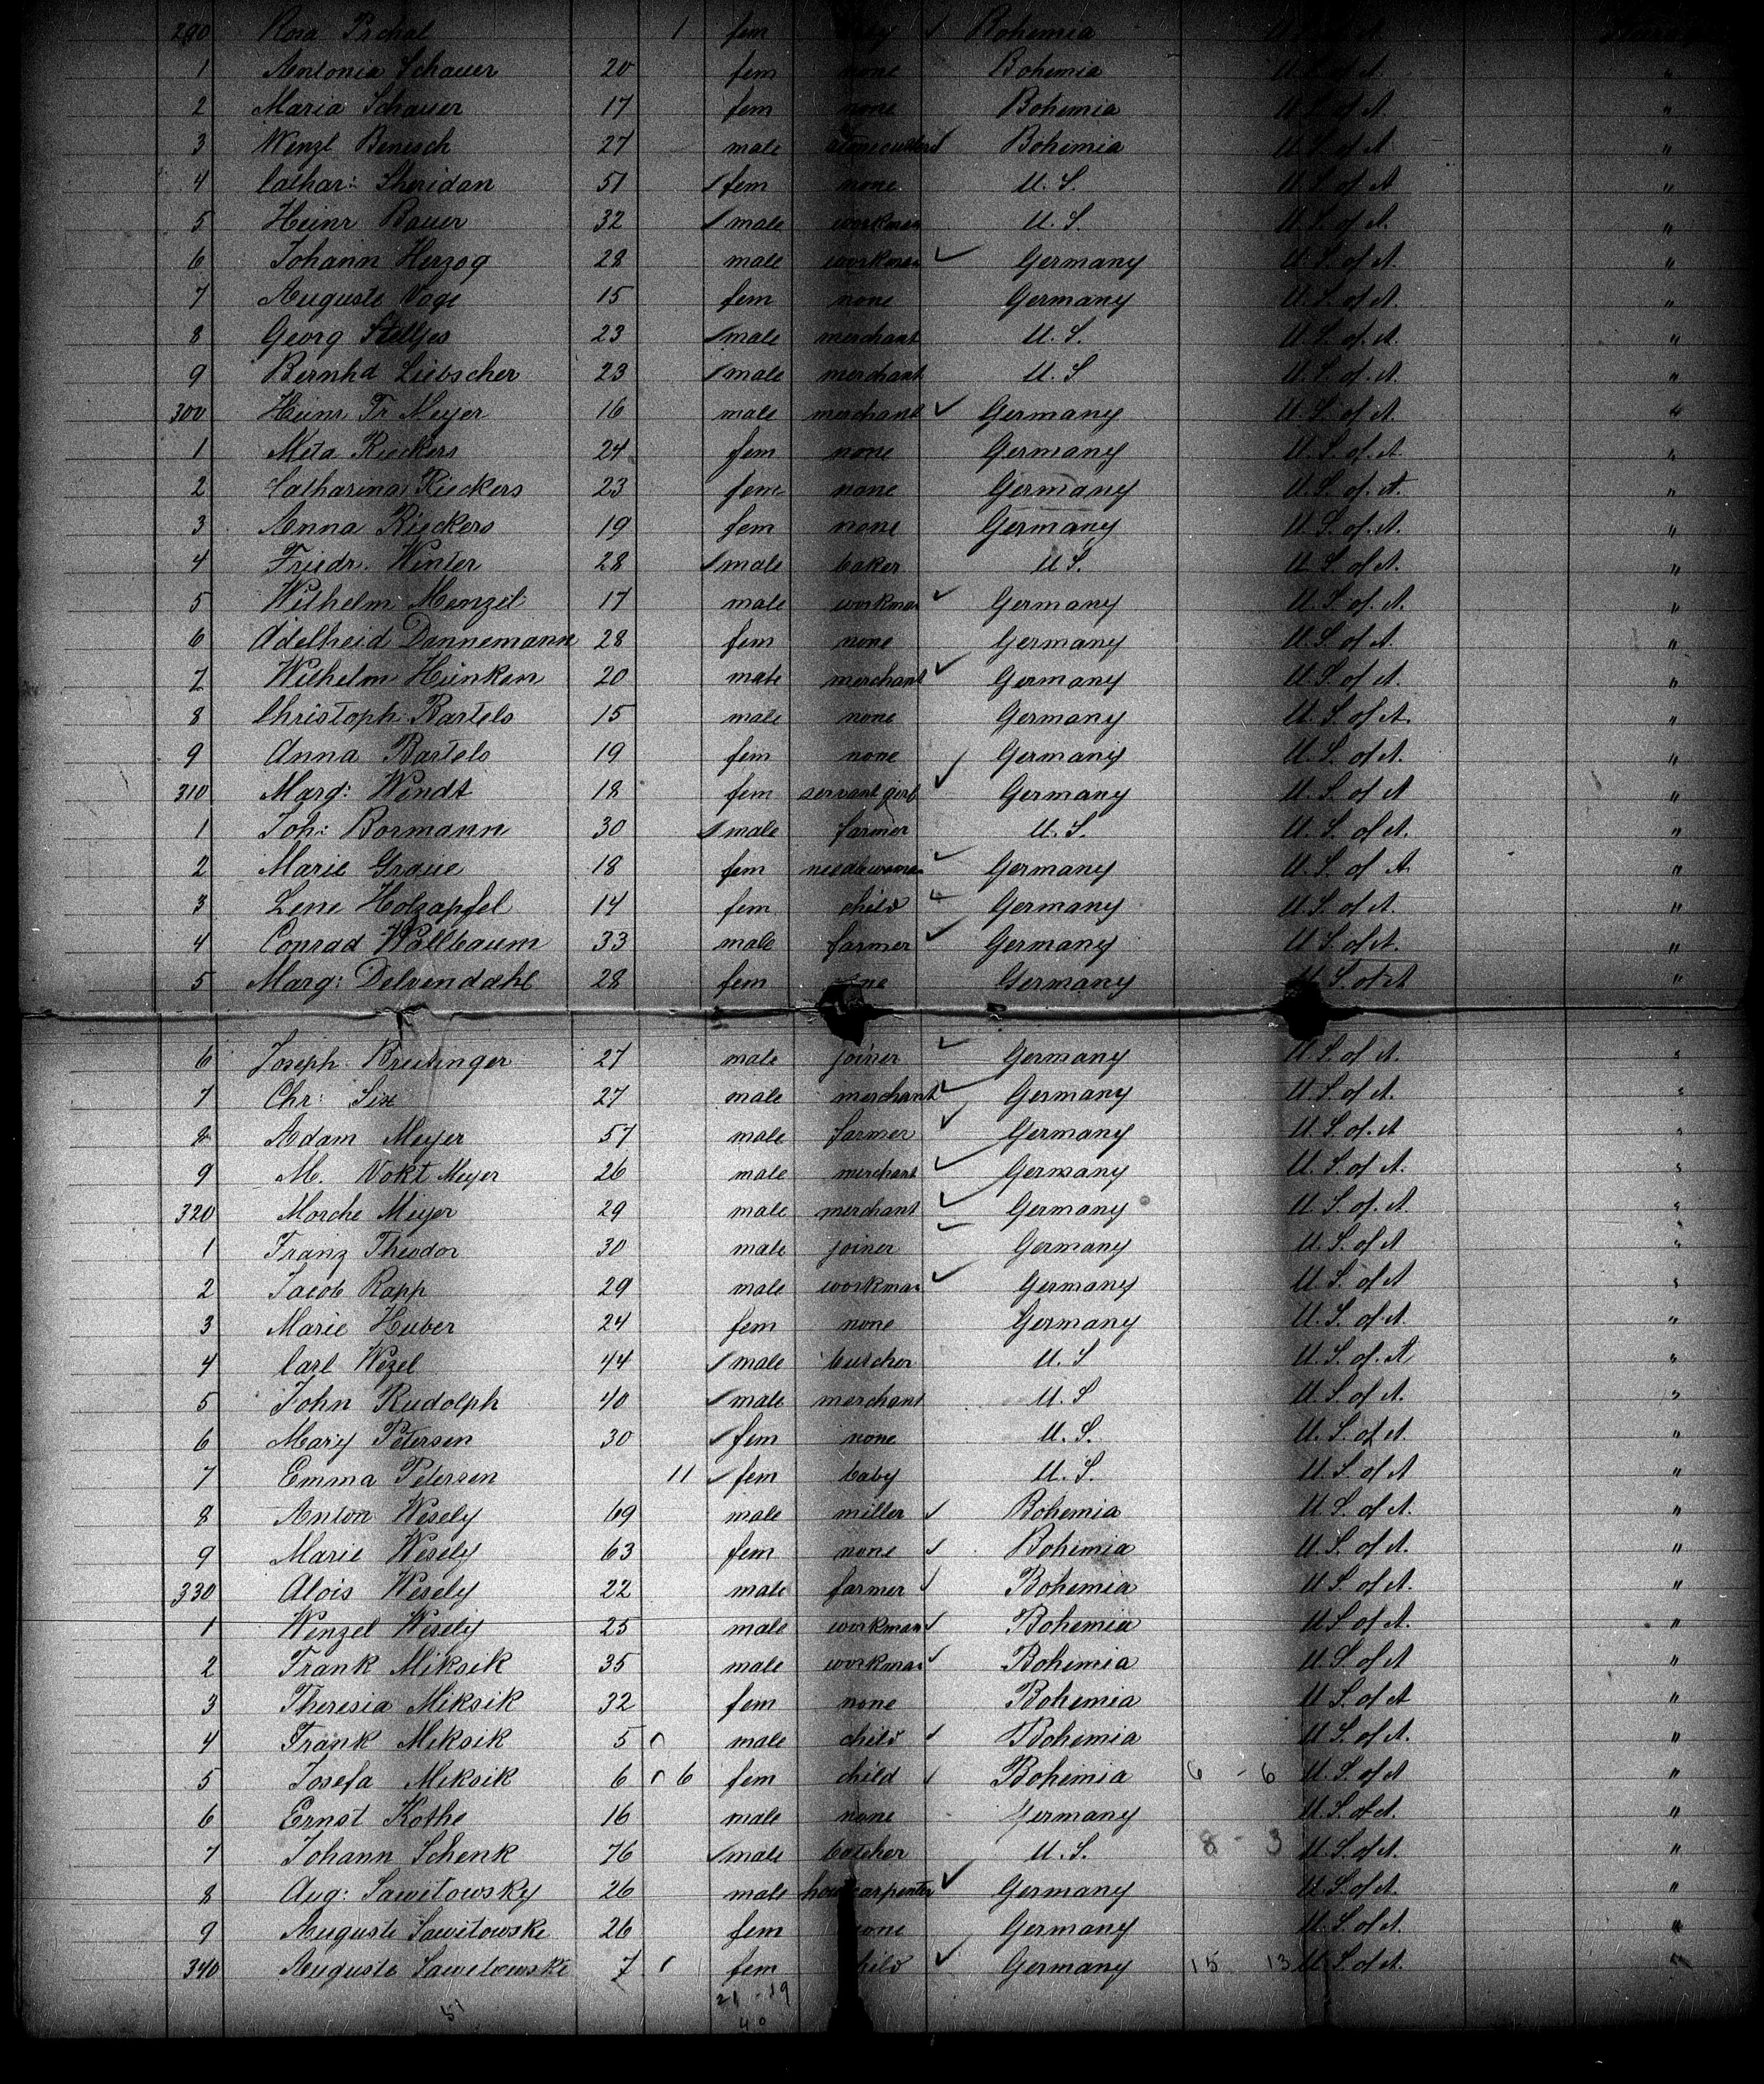 290 Rosa Prchal 1 fem baby Bohemia U. S. of A.
1 Antonia Schauer 20 fem none Bohemia U. S. of A. "
2 Maria Schauer 17 fem none Bohemia U. S. of A. "
3 Wenzl Benesch 27 male stonecutter ✓ Bohemia U. S. of A "
4 Cathar: Sheridan 51 ✓ fem none U. S. U. S. of A "
5 Heinr Bauer 32 ✓ male workman U. S. U. S. of A. "
6 Johann Herzog 28 male workman ✓ Germany U. S. of A. "
7 Auguste Vage 15 fem none Germany U. S. of A. "
8 Georg Stelljes 23 ✓ male merchant U. S. U. S. of A. "
9 Bernhd Liebscher 23 ✓ male merchant U. S U. S. of A. "
300 Heinr Fr Meyer 16 male merchant ✓ Germany U. S. of A. "
1 Meta Rieckers 24 fem none Germany U. S. of A. "
2 Catharina Rieckers 23 fem none Germany U. S. of A. "
3 Anna Rieckers 19 fem none Germany U. S. of A. "
4 Friedr. Winter 28 ✓ male baker U S. U. S. of A. "
5 Wilhelm Menzel 17 male workman ✓ Germany U. S. of A. "
6 Adelheid Dannemann 28 fem none Germany U. S. of A. "
7 Wilhelm Heinken 20 male merchant ✓ Germany U. S. of A. "
8 Christoph Bartels 15 male none Germany U. S. of A. "
9 Anna Bartels 19 fem none Germany U. S. of A. "
310 Marg: Wendt 18 fem servant girl ✓ Germany U. S. of A "
1 Joh: Bormann 30 ✓ male farmer U. S. U. S. of A. "
2 Marie Graue 18 fem needlewoman ✓ Germany U. S. of A. "
3 Lene Holzapfel 14 fem child ✓ Germany U. S. of A. "
4 Conrad Wallbaum 33 male farmer ✓ Germany U. S. of A. "
5 Marg: Delvendahl 28 fem Germany U. S. of A "
6 Joseph Breitinger 27 male joiner ✓ Germany U. S. of A. "
7 Chr: Six 27 male merchant ✓ Germany U. S. of A. "
8 Adam Meyer 57 male farmer ✓ Germany U. S. of A "
9 M. Vokt Meyer 26 male merchant ✓ Germany U. S. of A. "
320 Morche Meyer 29 male merchant ✓ Germany U. S. of A "
1 Franz Theodor 30 male joiner ✓ Germany U. S. of A "
2 Jacob Rapp 29 male workman ✓ Germany U. S. of A "
3 Marie Huber 24 fem none Germany U. S. of A. "
4 Carl Wezel 44 ✓ male butcher U. S U. S. of A "
5 John Rudolph 40 ✓ male merchant U. S U. S. of A. "
6 Mary Petersen 30 ✓ fem none U. S. U. S. of A. "
7 Emma Petersen 11 ✓ fem baby U. S. U. S. of A "
8 Anton Wesely 69 male miller ✓ Bohemia U. S. of A. "
9 Marie Wesely 63 fem none ✓ Bohemia U. S. of A. "
330 Alois Wesely 22 male farmer ✓ Bohemia U. S. of A. "
1 Wenzel Wesely 25 male workman ✓ Bohemia U S of A. "
2 Frank Miksik 35 male workman ✓ Bohemia U. S. of A "
3 Theresia Miksik 32 fem none Bohemia U S. of A "
4 Frank Miksik 5 male child ✓ Bohemia U. S. of A. "
5 Josefa Miksik 6 6 fem child ✓ Bohemia 6 - 6 U. S. of A "
6 Ernst Kothe 16 male none Germany U. S. of A. "
7 Johann Schenk 76 ✓ male butcher U. S. 8 - 3 U. S. of A. "
8 Aug: Sawitowsky 26 male housecarpenter ✓ Germany U. S. of A. "
9 Auguste Sawitowski 26 fem none Germany U. S. of A. "
340 Auguste Sawitowski 7 fem child ✓ Germany 15 13 U. S. of A. "
51 21 - 19
40